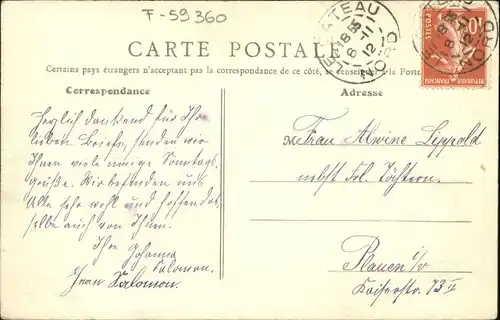 F-59360
LE CATEAU
18 35
8-11
12
NORD
CARTE POSTALE
Certains pays étrangers n'acceptant pas la correspondance de ce côté, se renseigner à la Poste
Correspondance
Adresse
Herzlich dankend für Ihre
lieben Briefe, senden wir
Ihnen viele innige Sonntags-
grüße. Wir befinden uns
Alle sehr wohl und hoffen das
selbe auch von Ihnen.
Ihre Johanna
Salomon.
Jean Salomon.
M Frau Alwine Lippold
nebst Frl. Töchtern.
Plauen i/V
Kaiserstr. 73 II
10
POSTES
RÉPUBLIQUE FRANÇAISE